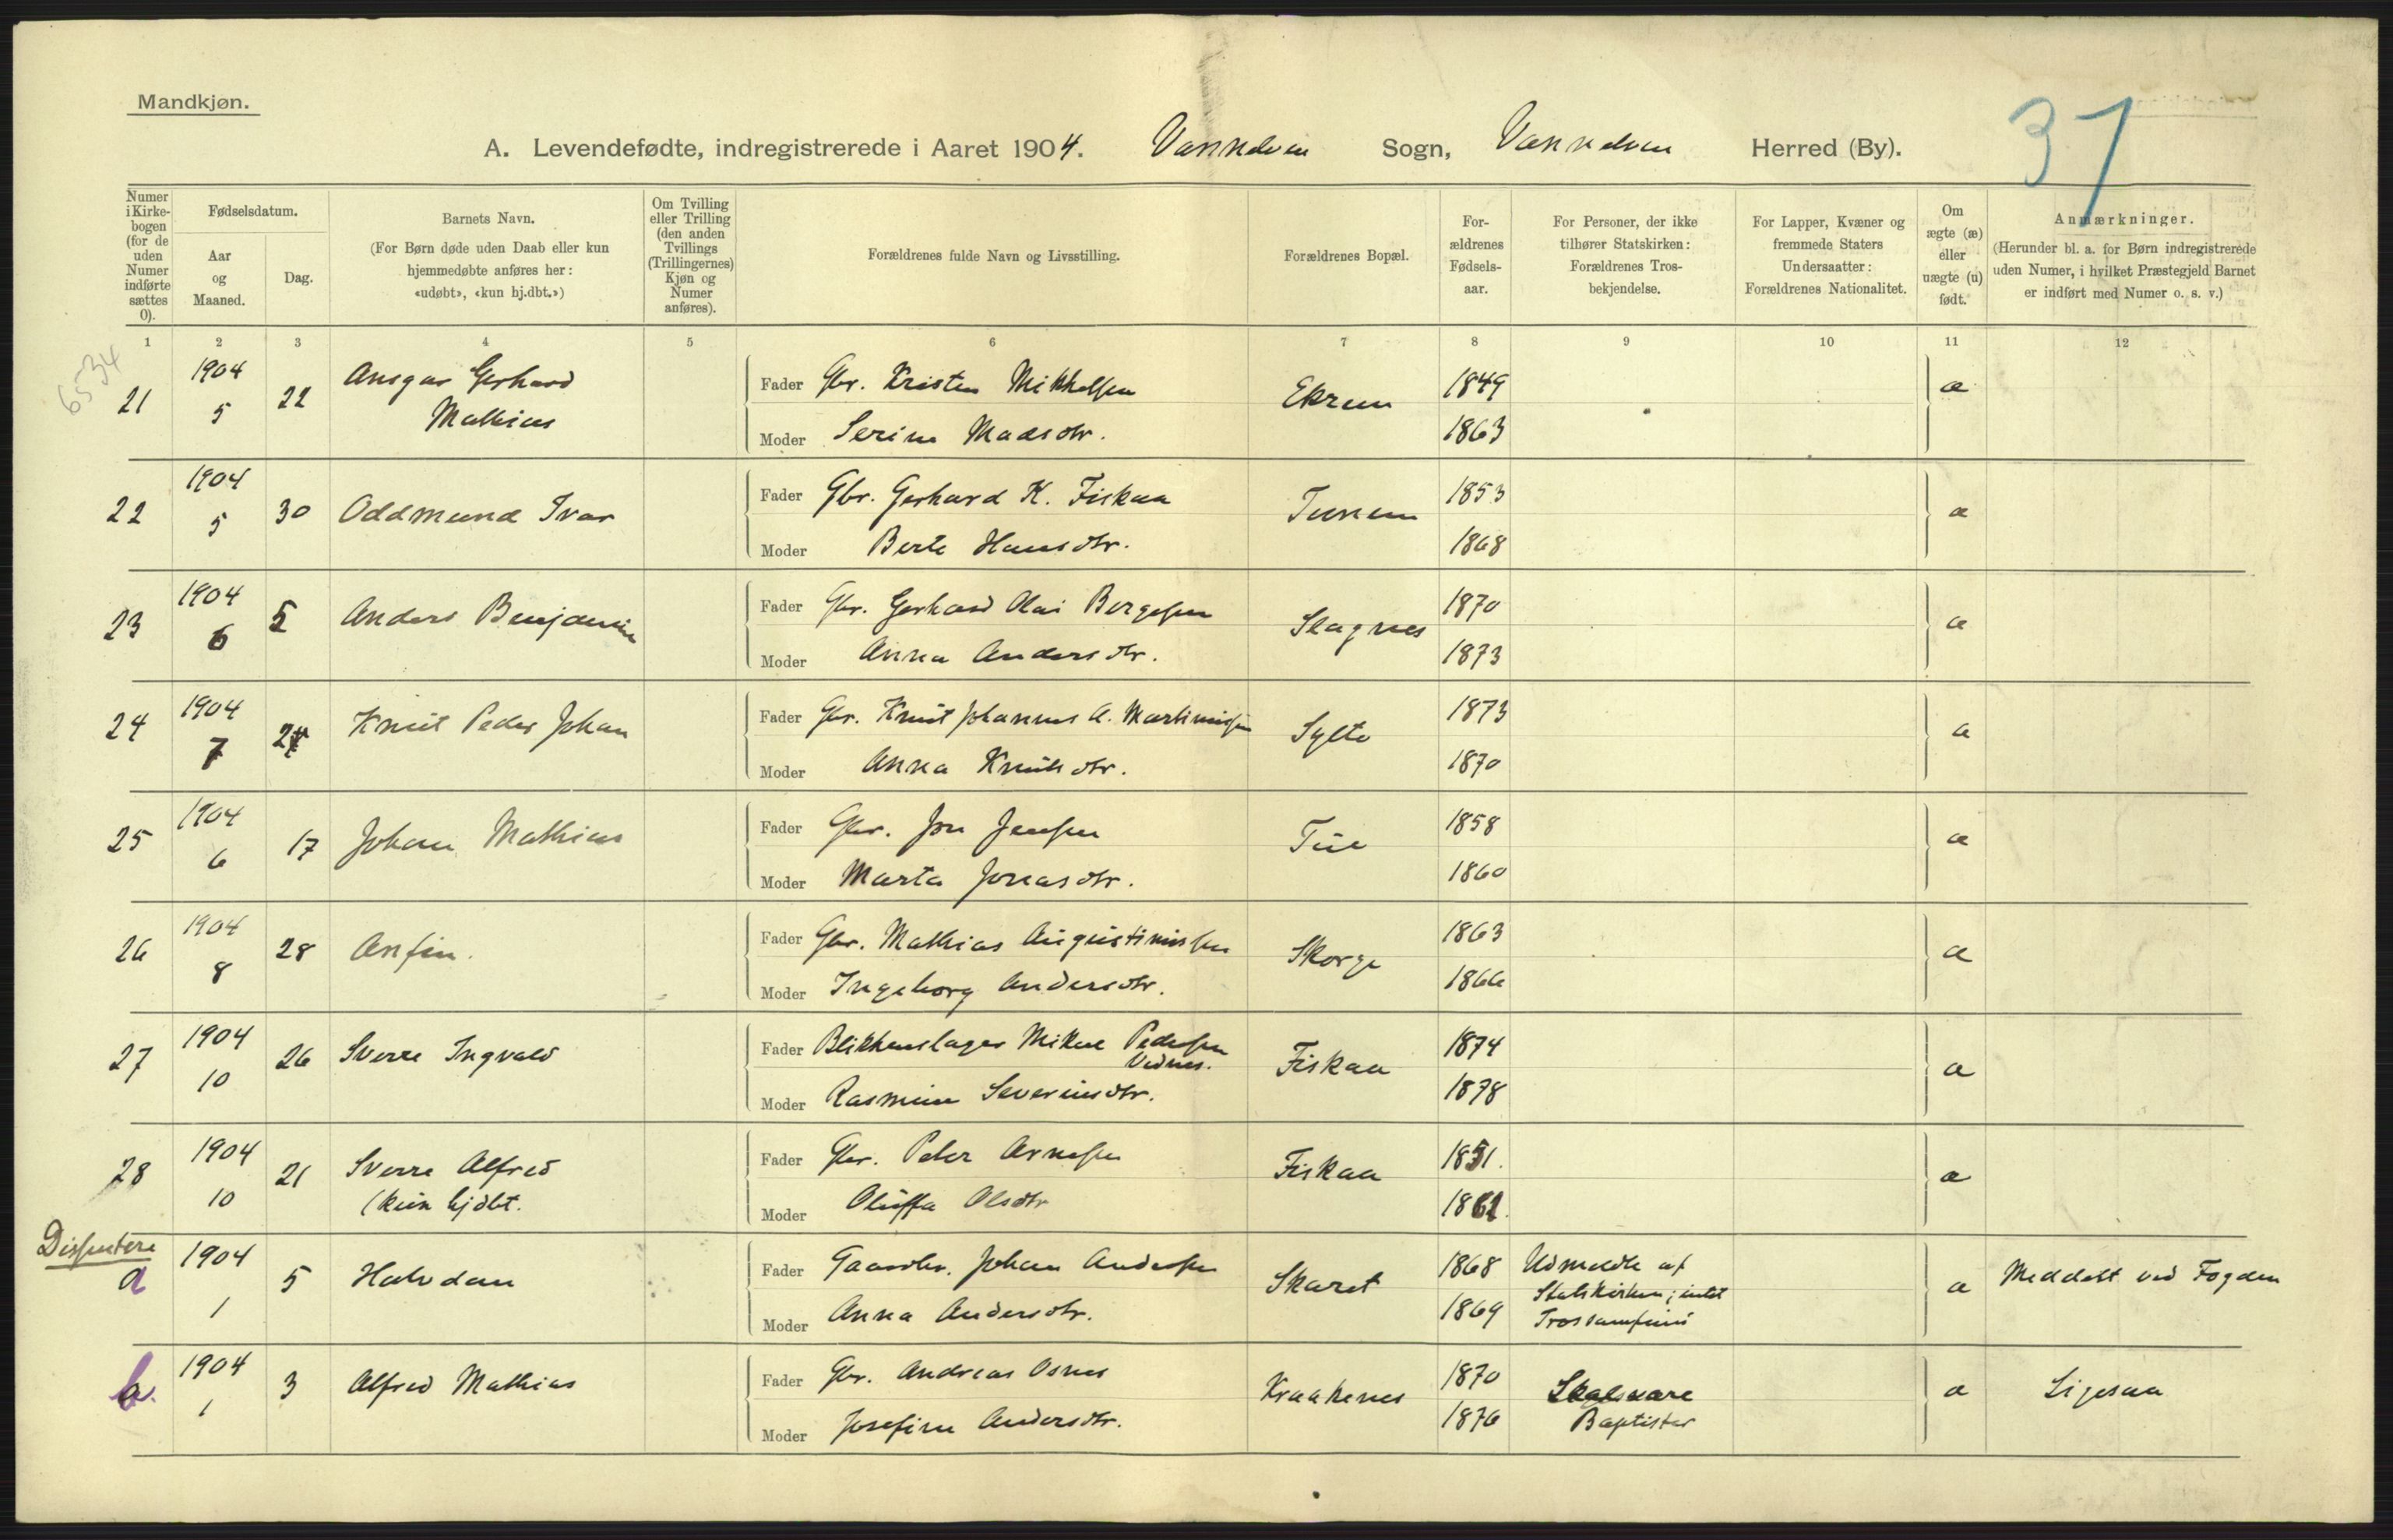 Mandkjøn.
37
A. Levendefødte, indregistrerede i Aaret 1904. Vannelven Sogn, Vannelven Herred (By).
Numer i Kirkebogen (for de uden Numer indførte sættes 0).
Fødselsdatum.
Aar og Maaned.
Dag.
Barnets Navn.
(For Børn døde uden Daab eller kun hjemmedøbte anføres her: «udøbt», «kun hj.dbt.»)
Om Tvilling eller Trilling (den anden Tvillings (Trillingernes) Kjøn og Numer anføres).
Forældrenes fulde Navn og Livsstilling.
Forældrenes Bopæl.
Forældrenes Fødselsaar.
For Personer, der ikke tilhører Statskirken: Forældrenes Trosbekjendelse.
For Lapper, Kvæner og fremmede Staters Undersaatter: Forældrenes Nationalitet.
Om ægte (æ) eller uægte (u) født.
Anmærkninger.
(Herunder bl. a. for Børn indregistrerede uden Numer, i hvilket Præstegjeld Barnet er indført med Numer o. s. v.)
1 2 3 4 5 6 7 8 9 10 11 12
6534
21 1904 5 22 Ansgar Gerhard Mathias
Fader Gbr. Kristen Mikkelsen Ekrem 1849 æ
Moder Serine Madsdtr. 1863
22 1904 5 30 Oddmund Ivar
Fader Gbr. Gerhard K. Fiskaa Tunem 1853 æ
Moder Berte Hansdtr. 1868
23 1904 6 5 Anders Benjamin
Fader Gbr. Gerhard Olai Børgesen Slagnes 1870 æ
Moder Anna Andersdtr. 1873
24 1904 7 24 Knut Peder Johan
Fader Gbr. Knut Johannes A. Martinussen Sylte 1873 æ
Moder Anna Knutsdtr. 1870
25 1904 6 17 Johan Mathias
Fader Gbr. Jon Jensen Tue 1858 æ
Moder Marta Jonasdtr. 1860
26 1904 8 28 Anfin.
Fader Gbr. Mathias Augustinussen Skorge 1863 æ
Moder Ingeborg Andersdtr. 1866
27 1904 10 26 Sverre Ingvald
Fader Blikkenslager Mikal Pedersen Vednes. Fiskaa 1874 æ
Moder Rasmine Severinsdtr. 1878
28 1904 10 21 Sverre Alfred (kun hjdbt.
Fader Gbr. Peter Arnesen Fiskaa 1851. æ
Moder Oluffa Olsdtr 1861.
Dissentere
a 1904 1 5 Halvdan
Fader Gaardbr. Johan Andersen Skaret 1868 Udmeldte af Statskirken; intet Trossamfund æ Meddelt ved Fogden
Moder Anna Andersdtr. 1869
b. 1904 1 3 Alfred Mathias
Fader Gbr. Andreas Osnes Kraakenes 1870 Baptister æ Ligesaa
Moder Josefine Andersdtr. 1876